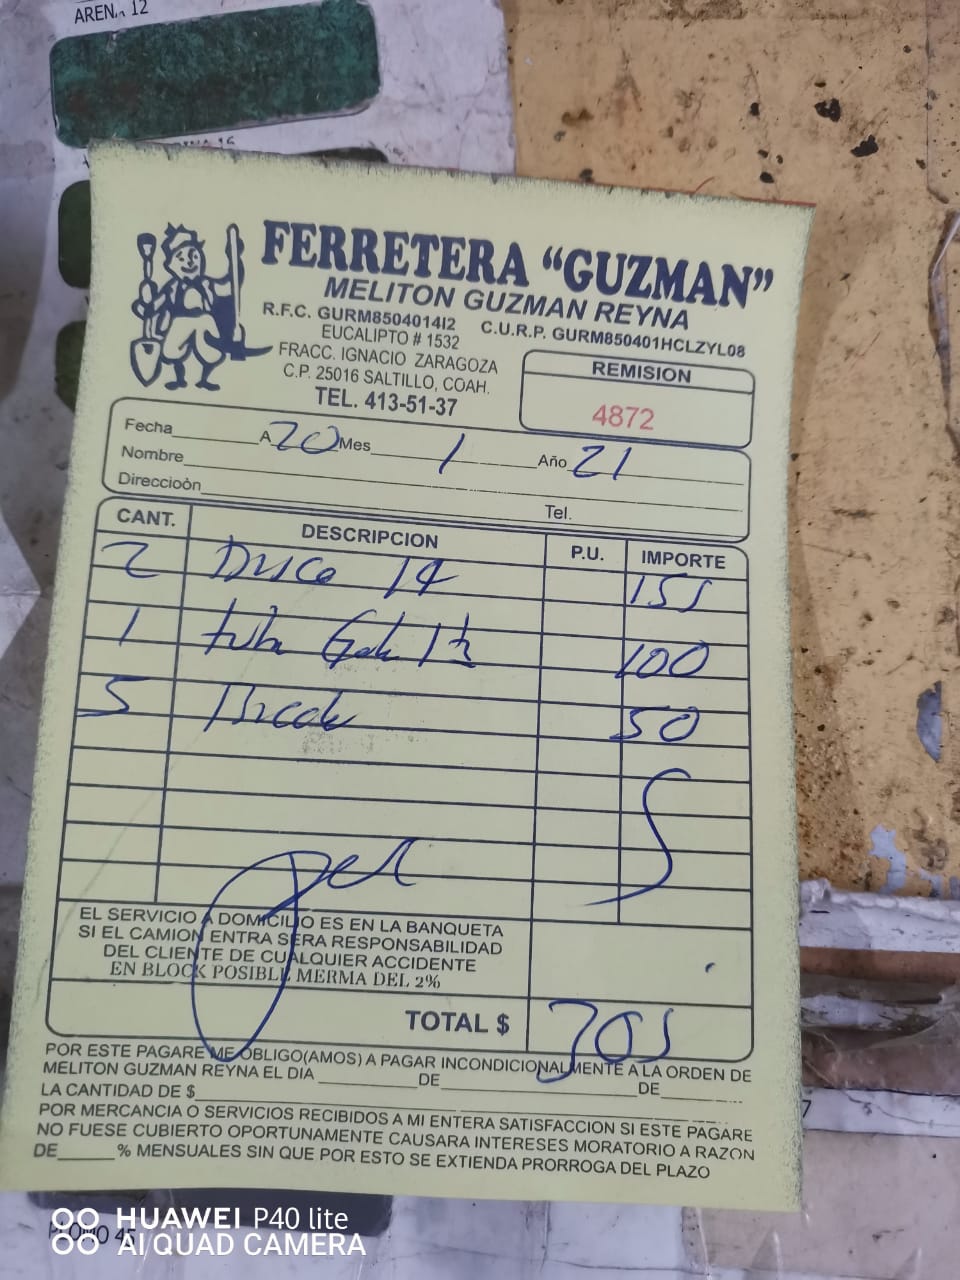 ARENA 12
FERRETERA “GUZMAN”
MELITON GUZMAN REYNA
R.F.C. GURM8504014I2 C.U.R.P. GURM850401HCLZYL08
EUCALIPTO # 1532
FRACC. IGNACIO ZARAGOZA
C.P. 25016 SALTILLO, COAH.
TEL. 413-51-37
REMISION
4872
Fecha A 20 Mes 1 Año 21
Nombre
Direcciòn Tel.
CANT. DESCRIPCION P.U. IMPORTE
2 Disco 14 155
1 tubo 1½ 100
5 50
EL SERVICIO A DOMICILIO ES EN LA BANQUETA
SI EL CAMION ENTRA SERA RESPONSABILIDAD
DEL CLIENTE DE CUALQUIER ACCIDENTE
EN BLOCK POSIBLE MERMA DEL 2%
TOTAL $ 305
POR ESTE PAGARE ME OBLIGO(AMOS) A PAGAR INCONDICIONALMENTE A LA ORDEN DE
MELITON GUZMAN REYNA EL DIA DE DE
LA CANTIDAD DE $
POR MERCANCIA O SERVICIOS RECIBIDOS A MI ENTERA SATISFACCION SI ESTE PAGARE
NO FUESE CUBIERTO OPORTUNAMENTE CAUSARA INTERESES MORATORIO A RAZON
DE % MENSUALES SIN QUE POR ESTO SE EXTIENDA PRORROGA DEL PLAZO
PLOMO 45
HUAWEI P40 lite
AI QUAD CAMERA